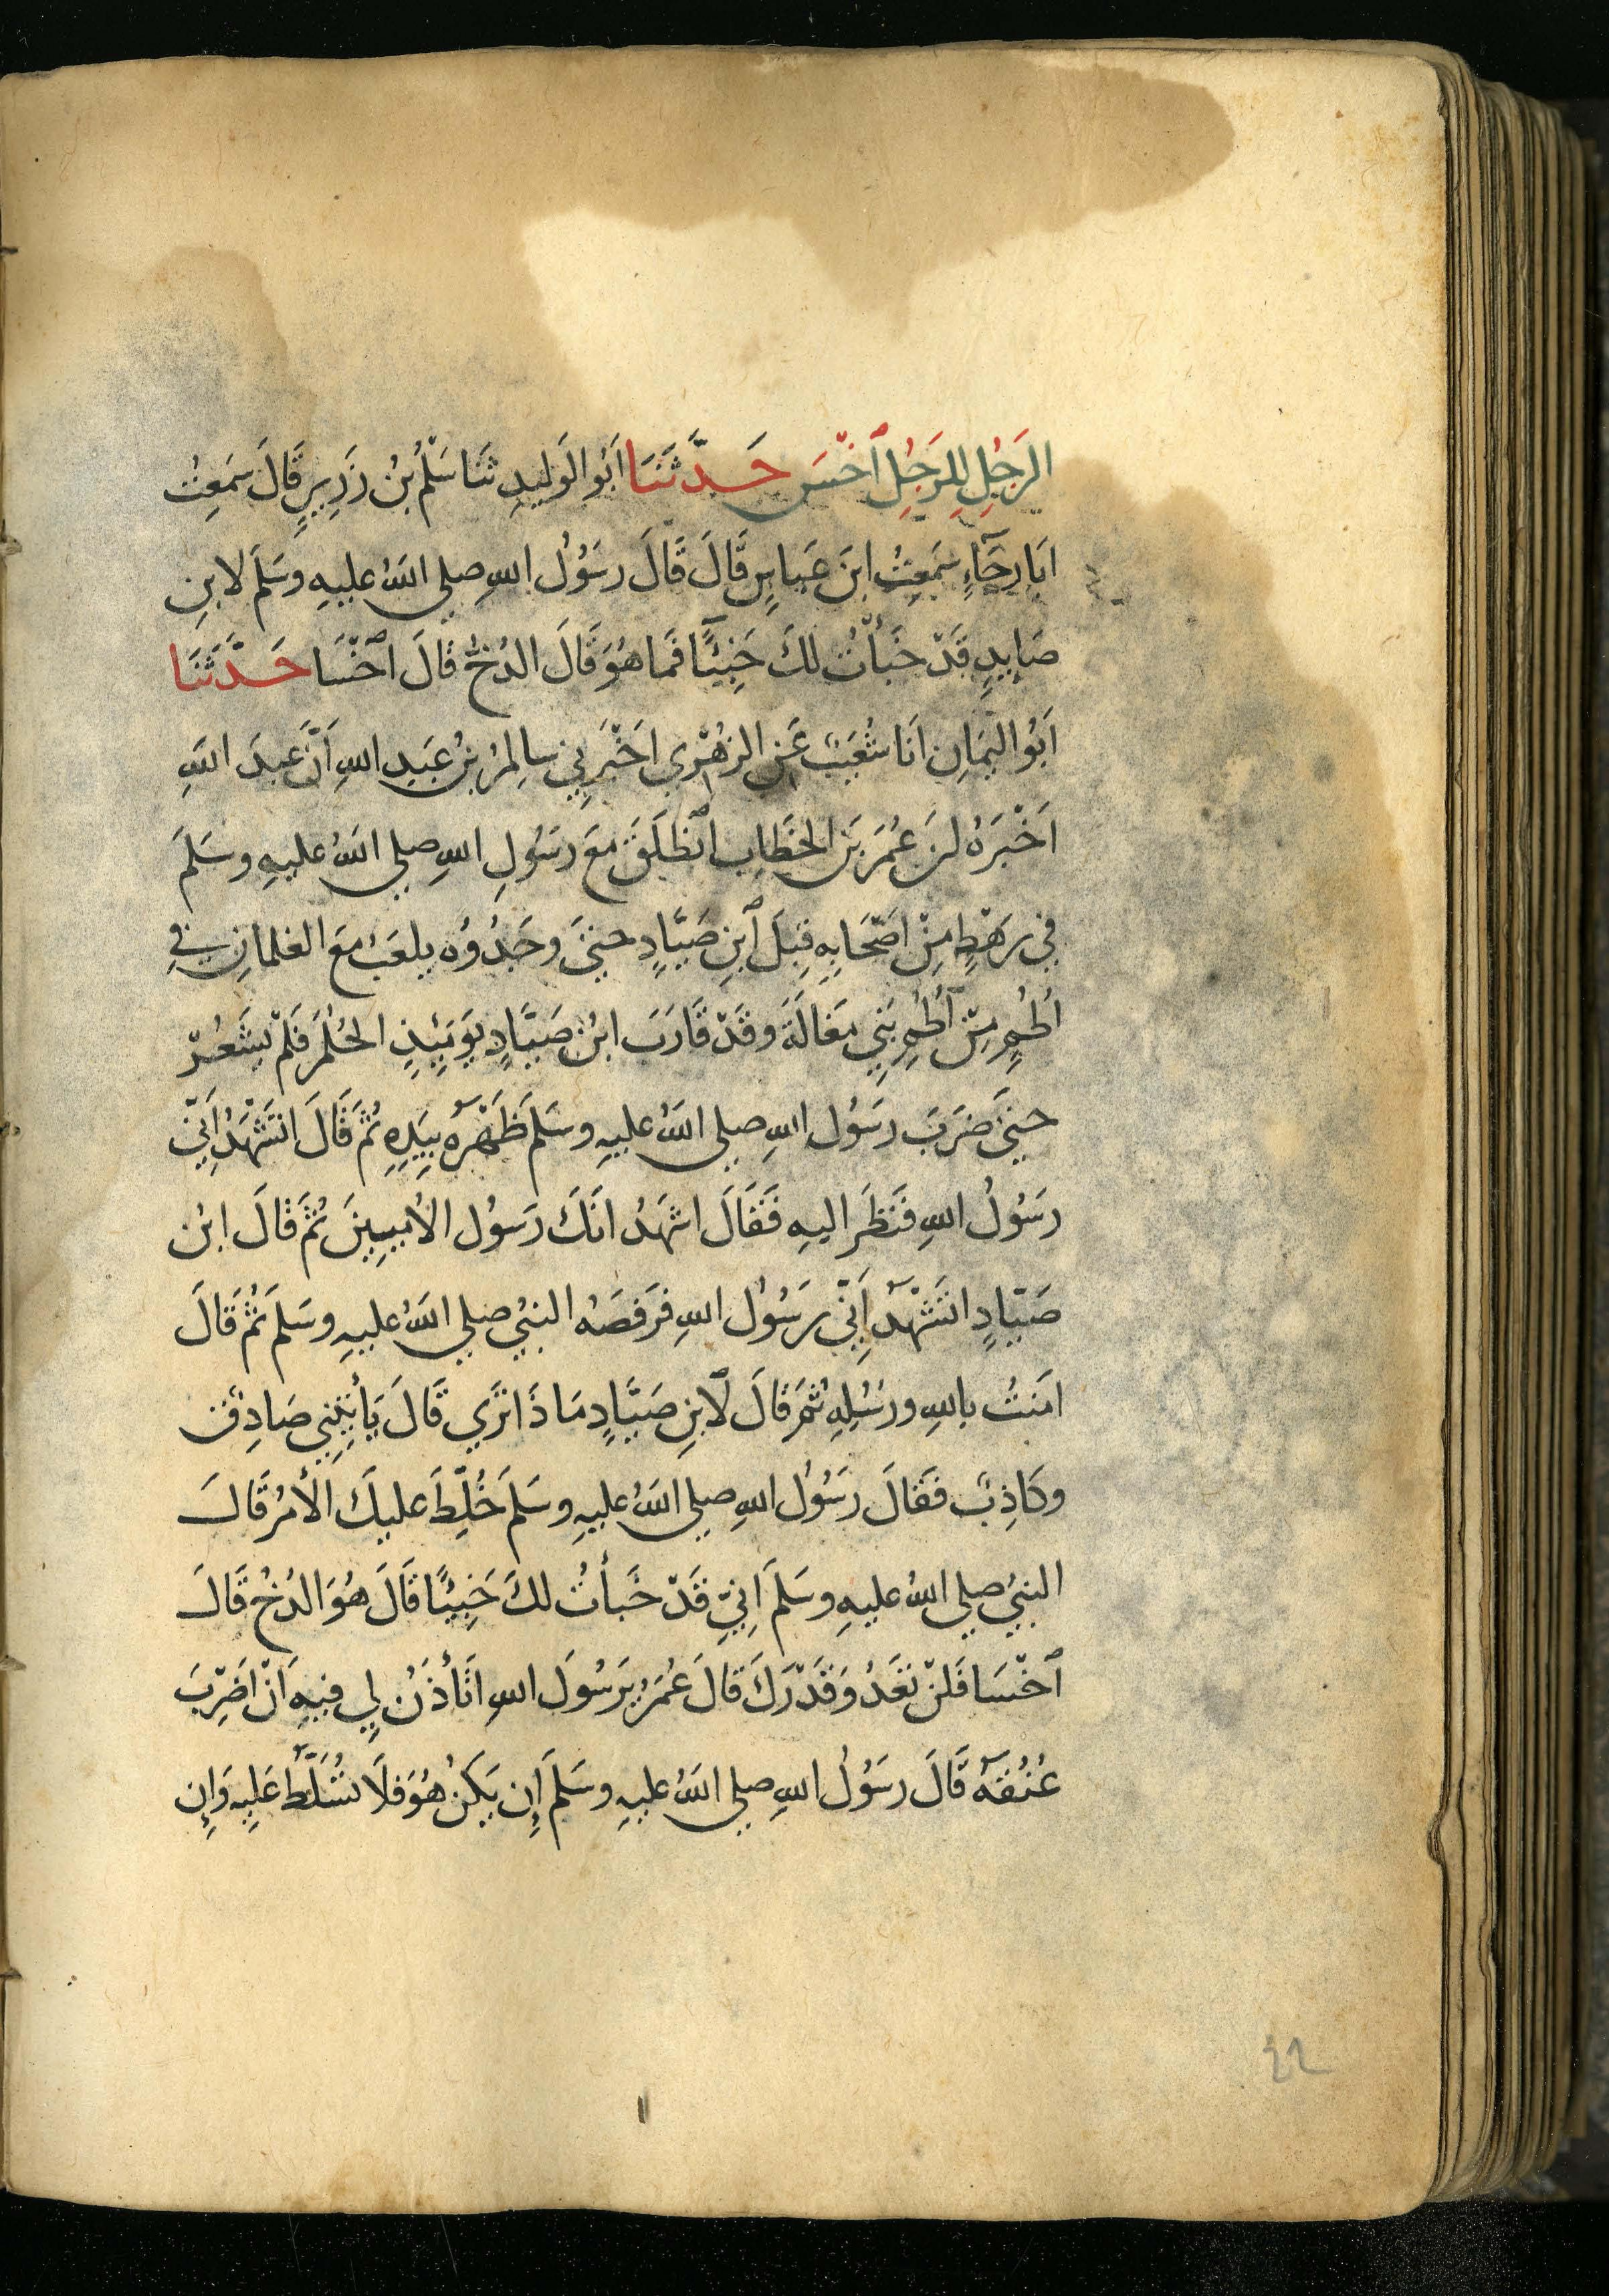 الرَجُلِ لِلرَجُلِ ٱخْسَ حَدَّثَنَا اَبُو الوَلِيدِ ثَنَا سَلْمُ بْنُ زَرِيرٍ قَالَ سَمِعْتُ
اَبَا رجَآءٍ سَمِعْتُ ابنَ عَبَاسٍ قَالَ قَالَ رسَوُلُ اللهِ صلى اللهُ عليهِ وسَلمَ لابنِ
صَايِدٍ قَدْ خَبَأتُ لكَ خَبِيئًا فَمَا هُوَ قَالَ الدُخُّ قالَ ٱخْسَا حَدَّثَنَا
اَبُو اليَمَانِ اَنَا شُعَيبٌ عَنِ الزهْرِي اخْبَرَنِي سالِمُ بنُ عَبدِ اللهِ اَنَّ عَبدَ اللهِ
اَخْبَرَهُ انَ عُمَرَ بنَ الخَطَابِ ٱنْطَلَقَ مَعَ رسَوُلِ اللهِ صلى اللهُ عليهِ وسَلمَ
في رَهْطٍ مِنْ اَصْحَابِهِ قِبَلَ ٱبنِ صَيَّادٍ حتىَ وجَدُوُه يلعَبُ مَعَ الغلمانِ في
اُطُمٍ مِنْ اُطُمِ بَنِي مَغَالَةَ وقَدْ قَارَبَ ابْنُ صَيَّادٍ يَومَئِذٍ الحُلُمَ فَلمْ يَشَعُرْ
حتىَ ضَرَبَ رسَوُل اللهِ صلى اللهُ عليهِ وسَلمَ ظَهْرَهُ بِيَدِهِ ثُمَ قَالَ اتَشْهَدُ اَنِّى
رسَوُلُ اللهِ فَنَظَرَ اليهِ فَقَالَ اشهَدُ انَكَ رسَوُل الأمّيِينَ ثُمَ قالَ ابْن
صَيّادٍ اتَشْهَدُ اَنِّي رسَوُل اللهِ فرَفصَهُ النبيُ صلى اللهُ عليهِ وسَلمَ ثُمَ قَالَ
امَنتُ باللهِ ورسُلِهِ ثُمَ قالَ لٱبنِ صَيَّادٍ مَا ذَا تَرَي قَالَ يَأتِينِي صَادِقٌ
وكَاذِبٌ فَقَالَ رسَوُل اللهِ صلى اللهُ عليهِ وسَلمَ خُلِّطَ عليكَ الأمرُ قَالَ
النبيُ صلى اللهُ عليهِ وسَلمَ اِنيِّ قَدْ خَبأتُ لكَ خَبِيئًا قَالَ هُوَ الدُخُ قَالَ
ٱخْسَا فَلنْ تَعَدُوَ قَدْرَكَ قالَ عُمَرُ يرَسُولَ اللهِ اتَأذَنُ لِي فِيهِ اَنْ اَضِرْبَ
عُنُقَهُ قَالَ رسَوُل اللهِ صلى اللهُ عليهِ وسَلمَ إِن يَكنُ هُوَ فَلَا تُسَلَّطُ عَليهِ وَإِن
٤٢